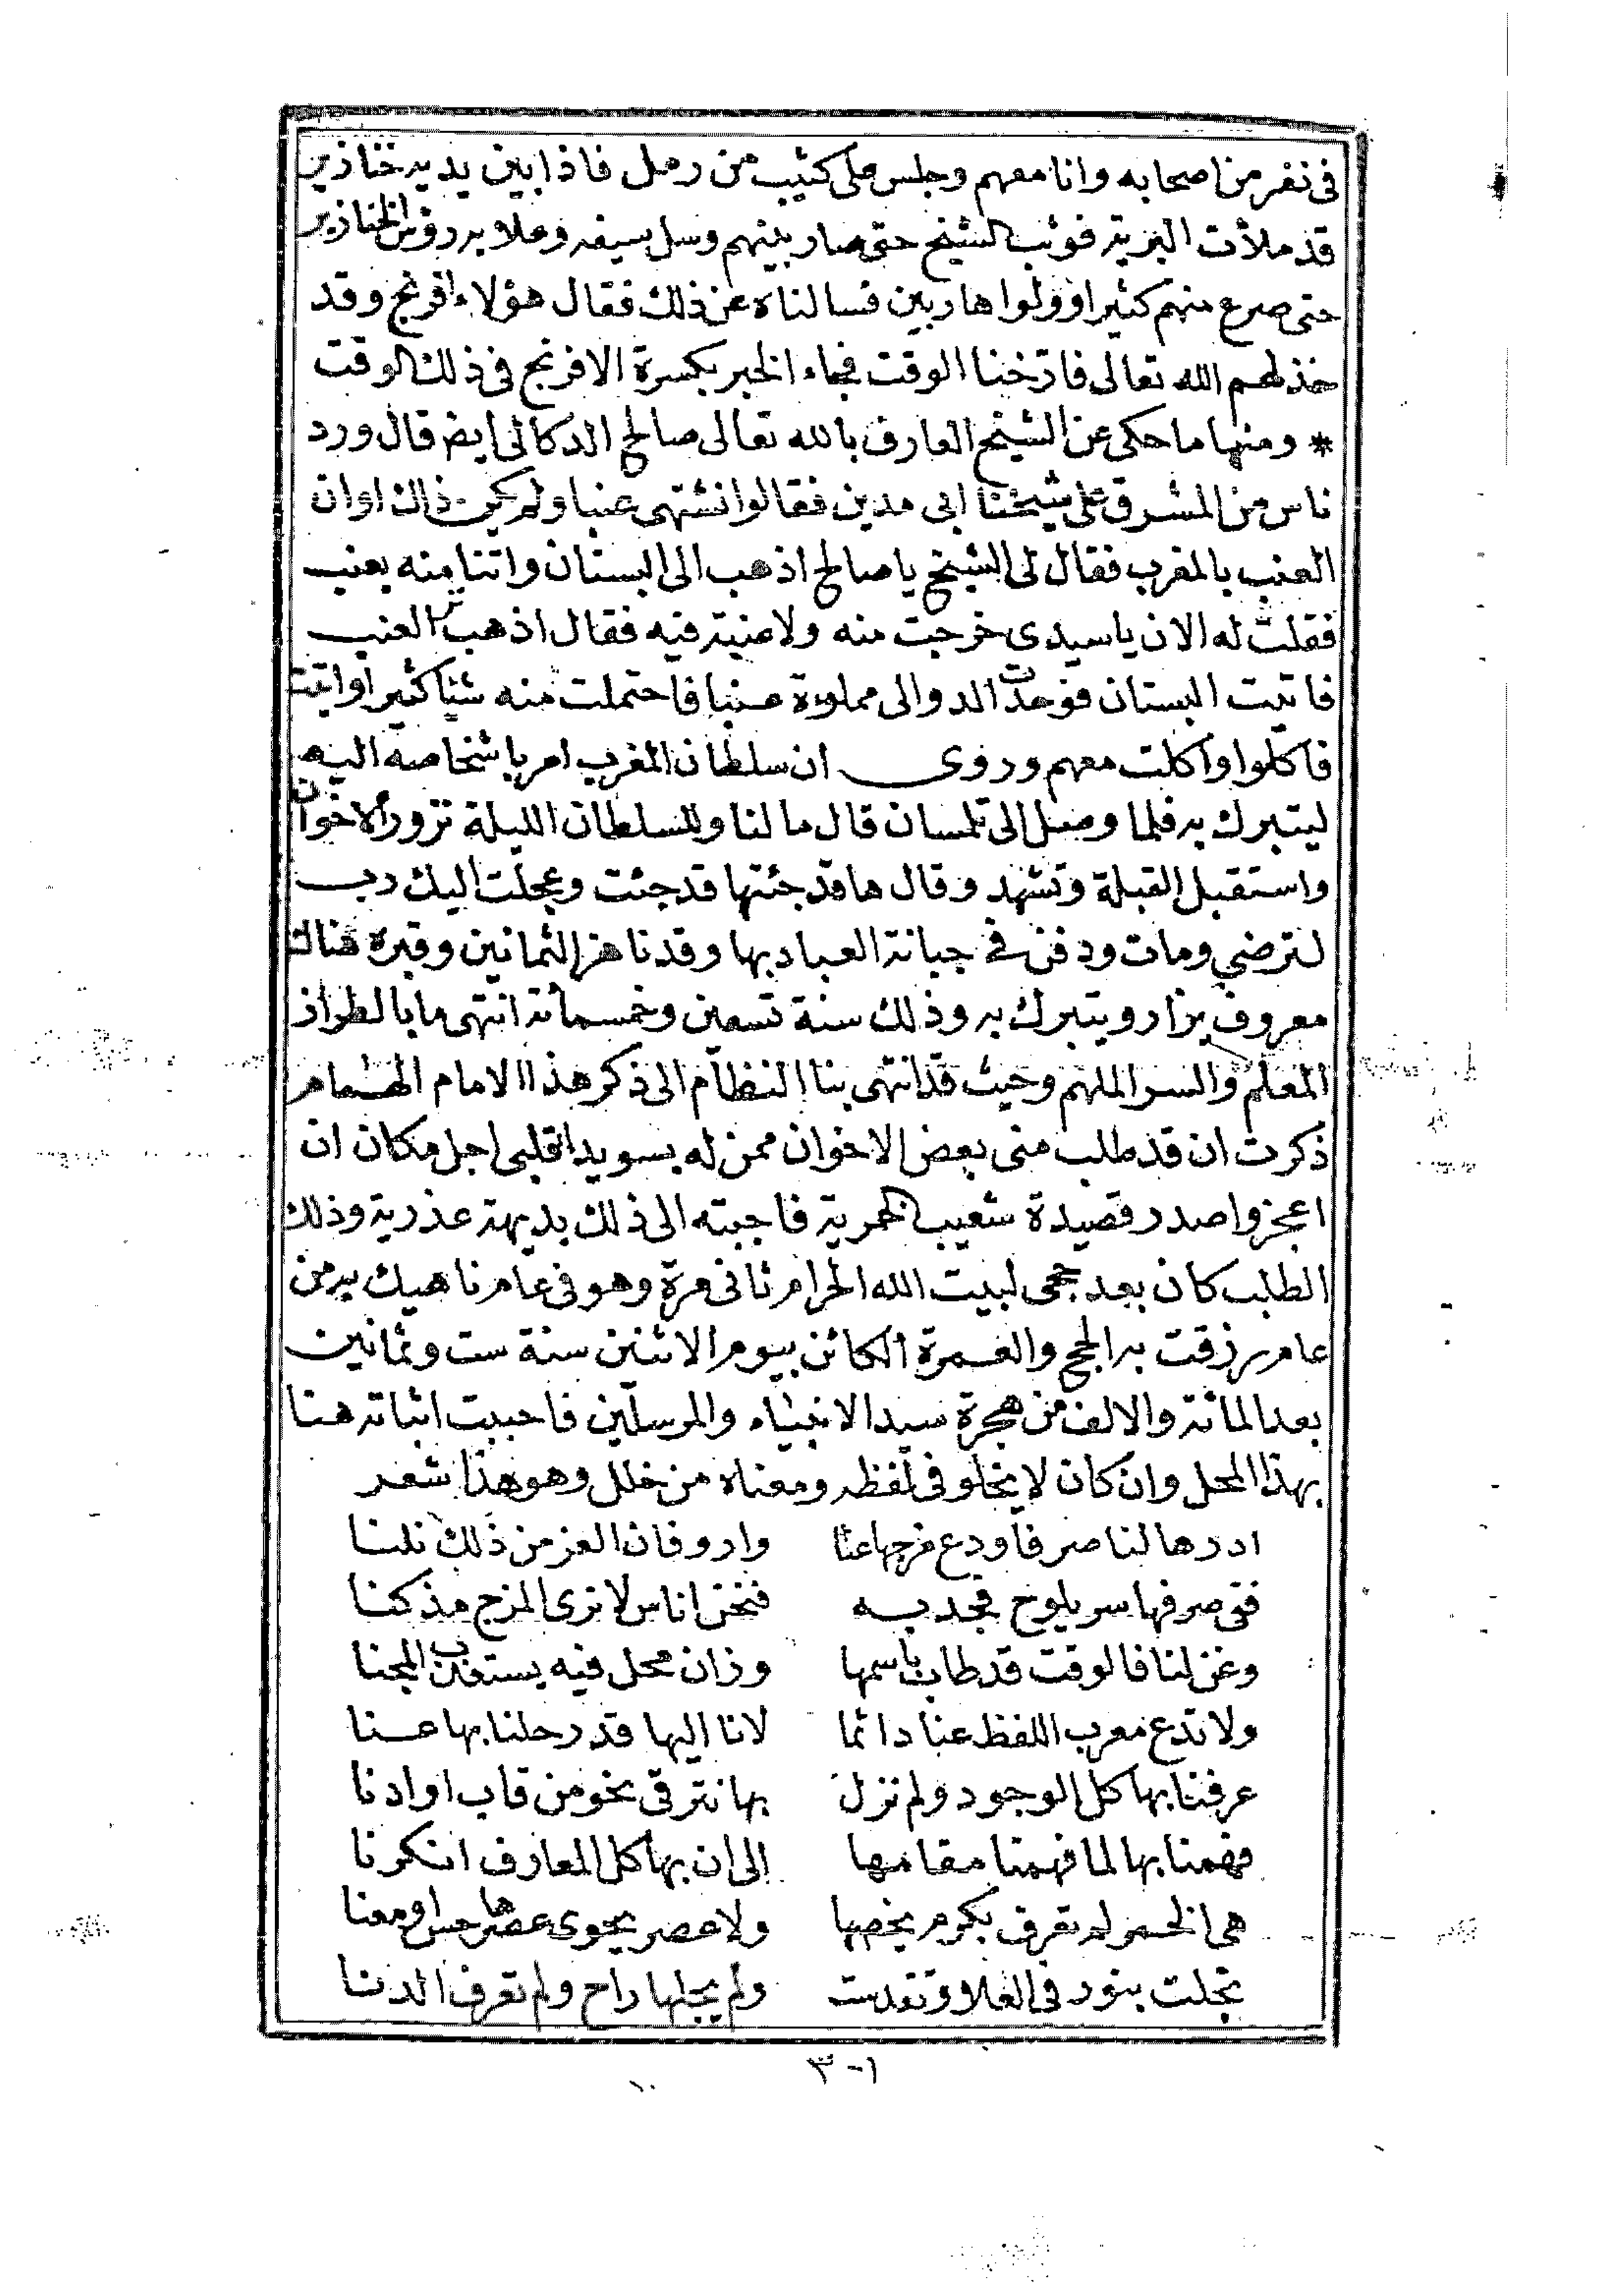 فى نفر من اصحابه وانا معهم وجلس على كثيب من رمل فاذا بين يديه خنازير
قد ملأت البرية فوثب الشيخ حتى صار بينهم وسل سيفه وعلا به رؤس الخنازير
حتى صرع منهم كثيرا وولوا هاربين فسالناه عن ذلك فقال هؤلاء افرنج وقد
خذلهم الله تعالى فارخنا الوقت فجاء الخبر بكسرة الافرنج فى ذلك الوقت
* ومنها ما حكى عن الشيخ العارف بالله تعالى صالح الدكالى ايض قال ورد
ناس من المشرق على شيخنا ابى مدين فقالوا نشتهى عنبا ولم يكن ذاك اوان
العنب بالمغرب فقال لى الشيخ يا صالح اذهب الى البستان واتنا منه بعنب
فقلت له الان يا سيدى خرجت منه ولا عنبة فيه فقال اذهب تر العنب
فاتيت البستان فوجدت الدوالى مملوءة عنبا فاحتملت منه شيا كثيرا واتيت
فاكلوا واكلت معهم وروى ان سلطان المغرب امر باشخاصه اليه
ليتبرك به فلما وصل الى تلمسان قال ما لنا وللسلطان الليلة نزور الاخوان
واستقبل القبلة وتشهد وقال ها قد جئتها قد جئت وعجلت اليك رب
لترضي ومات ودفن في جبانة العباد بها وقد ناهز الثمانين وقبره هناك
معروف يزار ويتبرك به وذلك سنة تسعين وخمسمائة انتهى ما بالطراز
المعلم والسر الملهم وحيث قد انتهى بنا النظام الى ذكر هذا الامام الهمام
ذكرت ان قد طلب منى بعض الاخوان ممن له بسويدا قلبى اجل مكان ان
اعجز واصدر قصيدة شعيب الخمرية فاجبته الى ذلك بديهة عذرية وذلك
الطلب كان بعد حجى لبيت الله الحرام ثانى مرة وهو فى عام ناهيك به من
عام رزقت به الحج والعمرة الكائن بيوم الاثنين سنة ست وثمانين
بعد المائة والالف من هجرة سيد الانبياء والمرسلين فاحببت اثباته هنا
بهذا المحل وان كان لا يخلو فى لفظه ومعناه من خلل وهو هذا شعر
ادرها لنا صرفا ودع مزجها عنا واروفان العز من ذلك نلنا
ففى صرفها سر يلوح فجد به فنحن اناس لا نرى المزج مذ كنا
وغن لنا فالوقت قد طاب باسمها وزان محل فيه يستعذب المجنا
ولا تدع معرب اللفظ عنا دائما لانا اليها قد رحلنا بها عنا
عرفنا بها كل الوجود ولم نزل بها نترقى نحو من قاب او ادنا
فهمنا بها لما فهمنا مقامها الى ان بها كل المعارف انكرنا
هى الخمر لم تعرف بكرم يخصها ولا عصر يحوى عصرها حسا ومعنا
تجلت بنور فى العلا وتقدست ولم يجلها راح ولم تعرف الدنا
١-٣
١٠